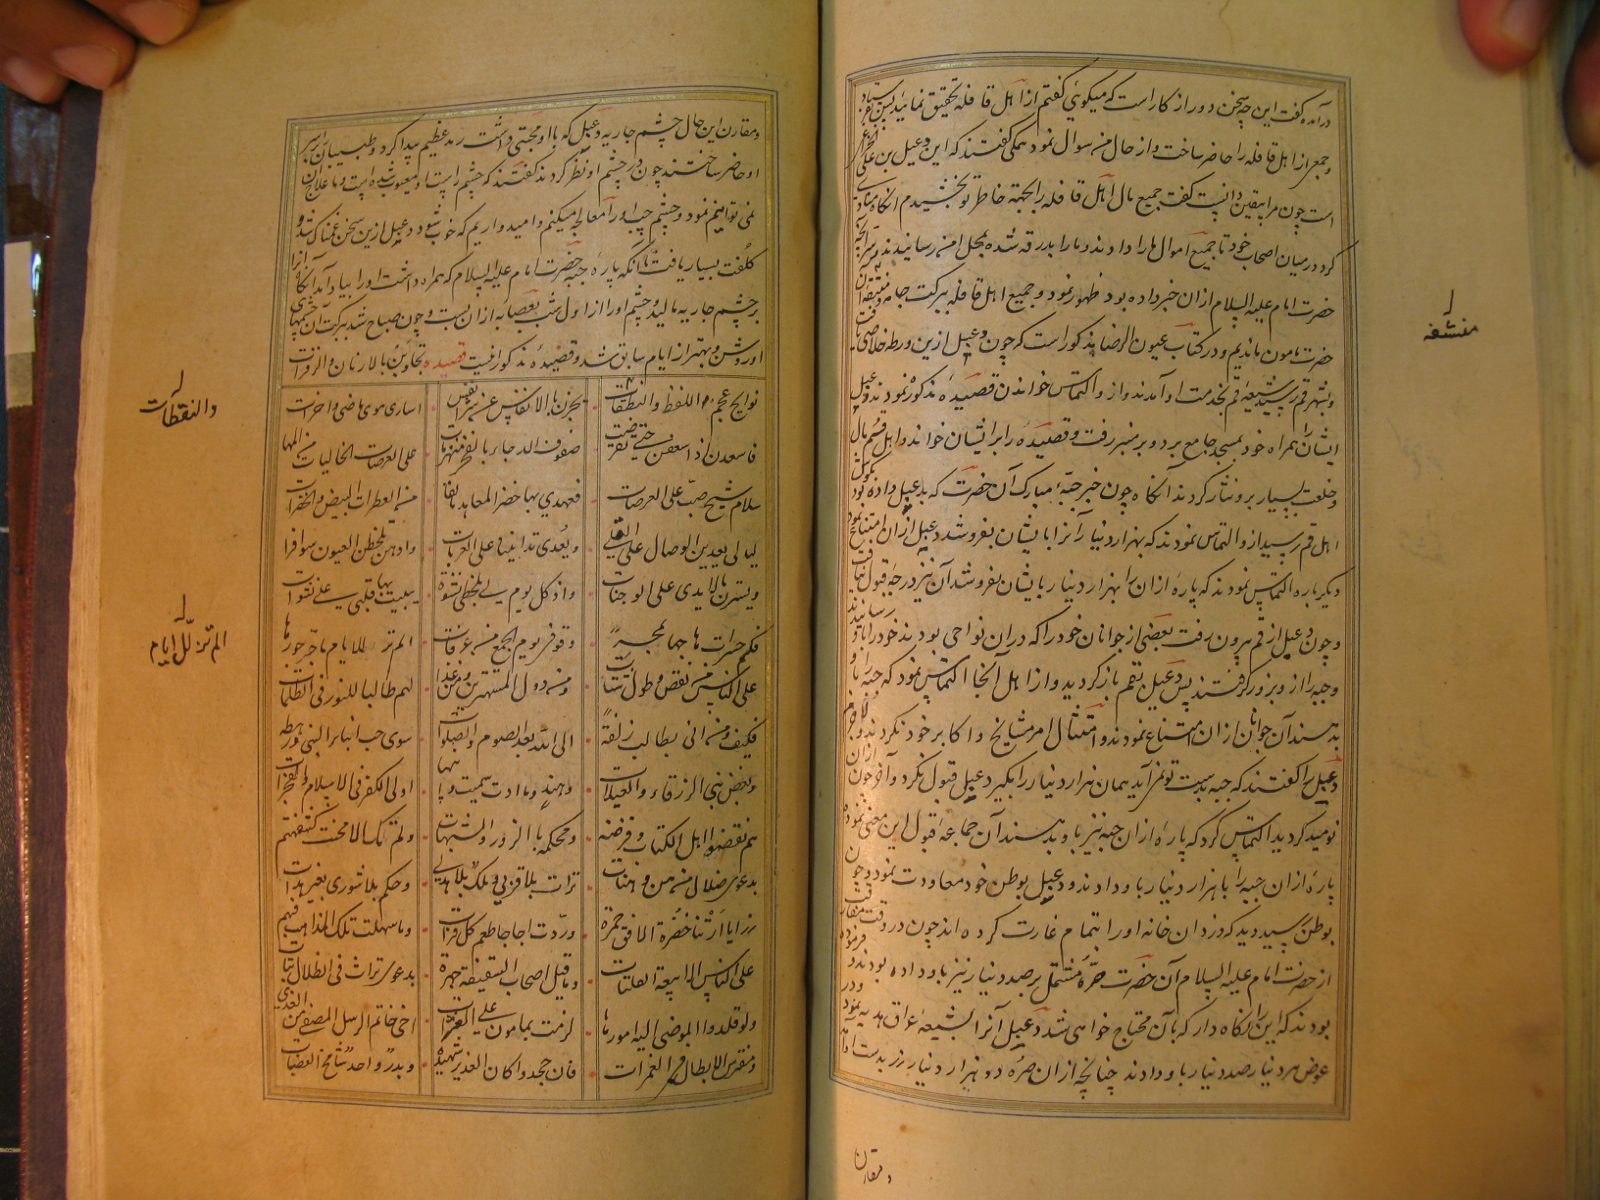 درآمده گفت این چه سخن دور از کار است که میگوئی گفتم از اهل قافله تحقیق نمائید پس
و جمعی از اهل قافله را حاضر ساخت و از حال من سوال نمود همگی گفتند که این دعبل بن علی
است چون مرا بیقین دانست گفت جمیع مال اهل قافله را بجهة خاطر تو بخشیدم آنگاه منادی
کرد در میان اصحاب خود تا جمیع اموال ما را دادند و ما را بدرقه شده بمحل امن رسانیدند
حضرت امام علیه السلام از ان خبر داده بود ظهور نمود و جمیع اهل قافله ببرکت جامه و منشفه آن
حضرت مامون ماندیم و در کتاب عیون الرضا مذکور است که چون دعبل ازین ورطه خلاصی یافت
و بشهر قم رسید شیعه قم بخدمت او آمدند و ازو التماس خواندن قصیده مذکور نمودند دعبل
ایشان را همراه خود بمسجد جامع برد و بر منبر رفت و قصیده را بر ایشان خواند و اهل قم مال
و خلعت بسیار برو نثار کردند آنگاه چون خبر جبه مبارک آن حضرت که بدعبل داده بود
اهل قم رسید ازو التماس نمودند که بهزار دینار آنرا بایشان بفروشد دعبل از ان امتناع نمود
دیگر باره التماس نمودند که پاره ازان را بهزار دینار بایشان بفروشد آن نیز درجه قبول نیافت
و چون دعبل از قم بیرون رفت بعضی از جوانان خود را که در ان نواحی بودند خود را باو رسانیدند
و جبه را ازو بزور گرفتند پس دعبل بقم باز گردید و از اهل آنجا التماس نمود که جبه را باو
بدهند آن جوانان از ان امتناع نمودند و امتثال امر مشایخ و اکابر خود نکردند
دعبل را گفتند که جبه بدست تو نمی آید همان هزار دینار را بگیر دعبل قبول نکرد و آخر چون
نومید گردید التماس کرد که پاره ازان جبه نیز باو بدهند آن جماعه قبول این معنی نموده
پاره ازان جبه را با هزار دینار باو دادند و دعبل بوطن خود معاودت نمود و چون
بوطن رسید دید که دزدان خانه او را بتمام غارت کرده اند چون در وقت مفارقت
از حضرت امام علیه السلام آن حضرت صره مشتمل بر صد دینار نیز باو داده بودند و فرموده
بودند که این را نگاه دار که بآن محتاج خواهی شد دعبل آنرا بشیعه عراق هدیه نمود و در
عوض هر دینار صد دینار باو دادند چنانچه ازان صره ده هزار دینار زر بدست او آمد
منشفه
و مقارن
و مقارن این حال چشم جاریه دعبل که با او محبتی داشت رمد عظیم پیدا کرد و طبیبان بر سر
او حاضر ساختند چون در چشم او نظر کردند گفتند که چشم راست او معیوب شده است و ما علاج آن
نمی توانیم نمود و چشم چپ او را معالجه میکنیم و امیدواریم که خوب شود دعبل ازین سخن غمناک شد و
کلفت بسیار یافت تا آنکه پاره جبه حضرت امام علیه السلام که همراه داشت او را بیاد آمد آنگاه آنرا
بر چشم جاریه مالید و چشم او را از اول شب بعصابه ازان بست و چون صباح شد ببرکت آن چشمهای
او روشن و بهتر از ایام سابق شد و قصیده مذکور اینست قصیده تجاوبن بالارنان والزفرات
نوایح عجم اللفظ والنطقات • یخبرن بالانفاس عن سر انفس • اساری هوی ماض و اخر آت
فاسعدن او اسعفن حتی تقوضت • صفوف الدجا بالفجر منهزمات • علی العرصات الخالیات من المها
سلام شج صب علی العرصات • فعهدی بها خضر المعاهد مألفا • من العطرات البیض والخفرات
لیالی یعدین الوصال علی القلی • و یعدی تدانینا علی العزبات • واذ هن یلحظن العیون سوافرا
ویسترن بالایدی علی الوجنات • واذ کل یوم لی بلحظی نشوة • یبیت بها قلبی علی نشوات
فکم حسرات هاجها بمحسر • وقوفی یوم الجمع من عرفات • الم تر للایام ما جر جورها
علی الناس من نقص وطول شتات • ومن دول المستهزئین ومن غدا • بهم طالبا للنور فی الظلمات
فکیف ومن انی بطالب زلفة • الی الله بعد الصوم والصلوات • سوی حب ابناء النبی و رهطه
وبغض بنی الزرقاء والعبلات • وهند وما ادت سمیة وابنها • اولی الکفر فی الاسلام والفجرات
هم نقضوا اهل الکتاب و فرضه • ومحکمه بالزور والشبهات • ولم تک الا محنة کشفتهم
بدعوی ضلال من هن وهنات • تراث بلا قربی وملک بلا هدی • وحکم بلا شوری بغیر هدات
رزایا ارتنا خضرة الافق حمرة • وردت اجاجا طعم کل فرات • وما سهلت تلک المذاهب فیهم
علی الناس الا بیعة الفلتات • وما قیل اصحاب السقیفة جهرة • بدعوی تراث فی الضلال نتات
ولو قلدوا الموصی الیه امورها • لزمت بمامون علی العثرات • اخی خاتم الرسل المصفی من القذی
ومفترس الابطال فی الغمرات • فان جحدوا کان الغدیر شهیده • وبدر واحد شامخ الهضبات
والنقطات
الم تر للایام